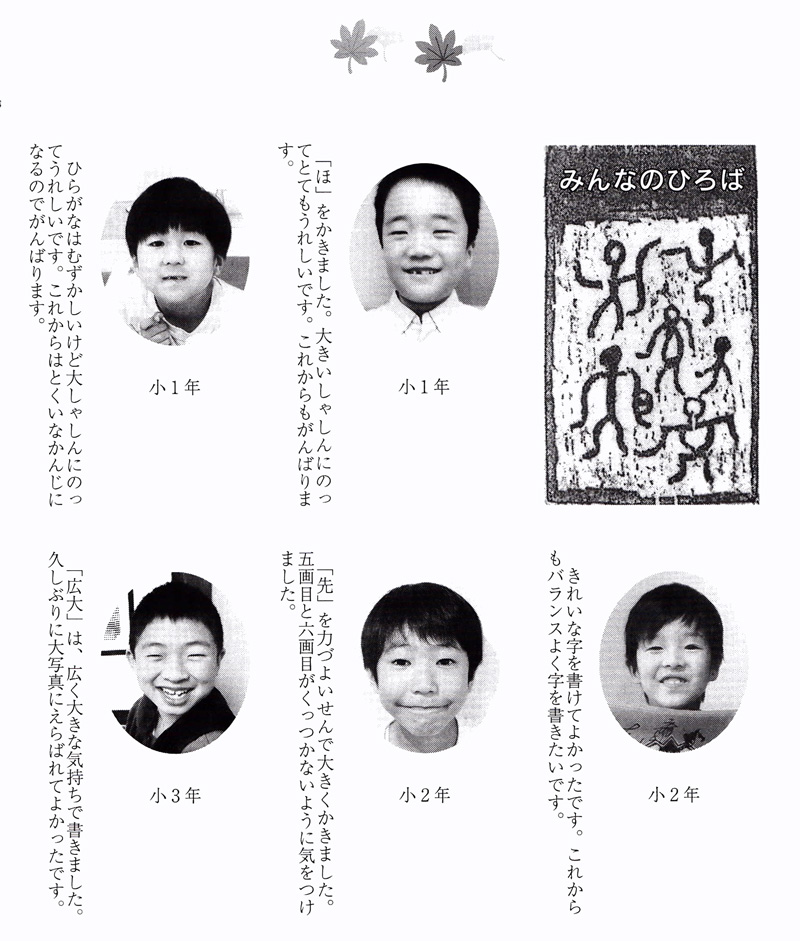 みんなのひろば
小1年
「ほ」をかきました。大きいしゃしんにのっ
てとてもうれしいです。これからもがんばりま
す。
小1年
ひらがなはむずかしいけど大しゃしんにのっ
てうれしいです。これからはとくいなかんじに
なるのでがんばります。
小2年
きれいな字を書けてよかったです。これから
もバランスよく字を書きたいです。
小2年
「先」を力づよいせんで大きくかきました。
五画目と六画目がくっつかないように気をつけ
ました。
小3年
「広大」は、広く大きな気持ちで書きました。
久しぶりに大写真にえらばれてよかったです。